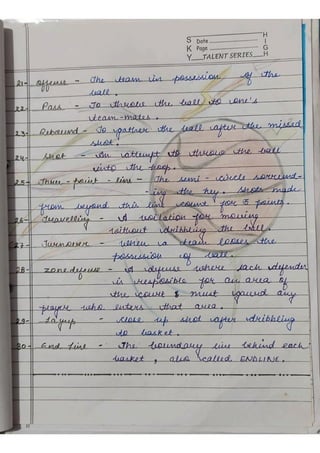 S Date H
K Page I
Y TALENT SERIES G H
21- Offense - The team in possession of the
ball.
22- Pass - To throw the ball to one's
team-mates.
23- Rebound - To gather the ball after the missed
shot.
24- Shot - An attempt to throw the ball
into the hoop.
25- Three-point-line - The semi-circle surround-
-ing the key. Shots made
from beyond this line count for 3 points.
26- Travelling - A voilation for moving
without dribbling the ball.
27- Turnover - When a team looses the
possession of ball.
28- Zone defense - A defense where each defender
is resposible for an area of
the court & must guard any
player who enters that area.
29- Layup - Close up shot after dribbling
to basket.
30- End line - The boundary line behind each
basket, also called ENDLINE.